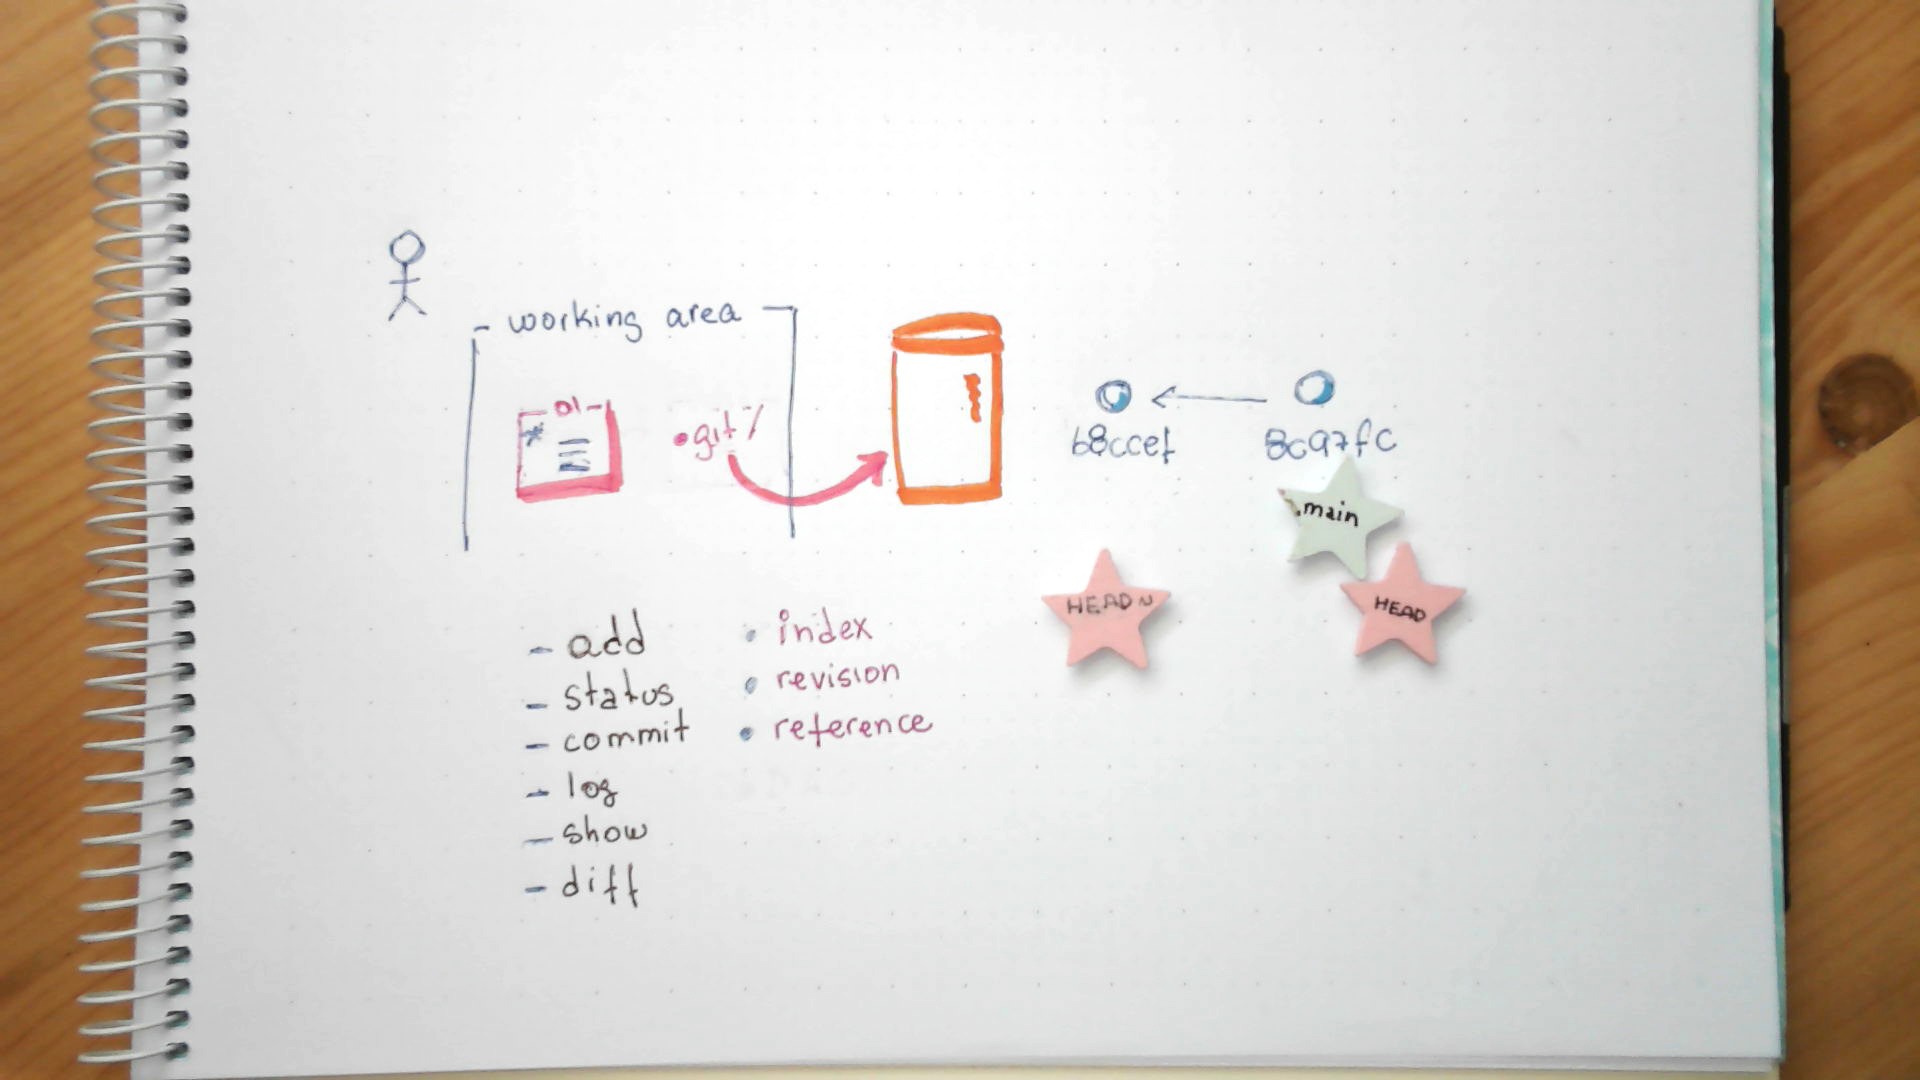 working area
01
.git/
b8ccef
8ca7fc
main
HEAD~
HEAD
- add
- status
- commit
- log
- show
- diff
• index
• revision
• reference